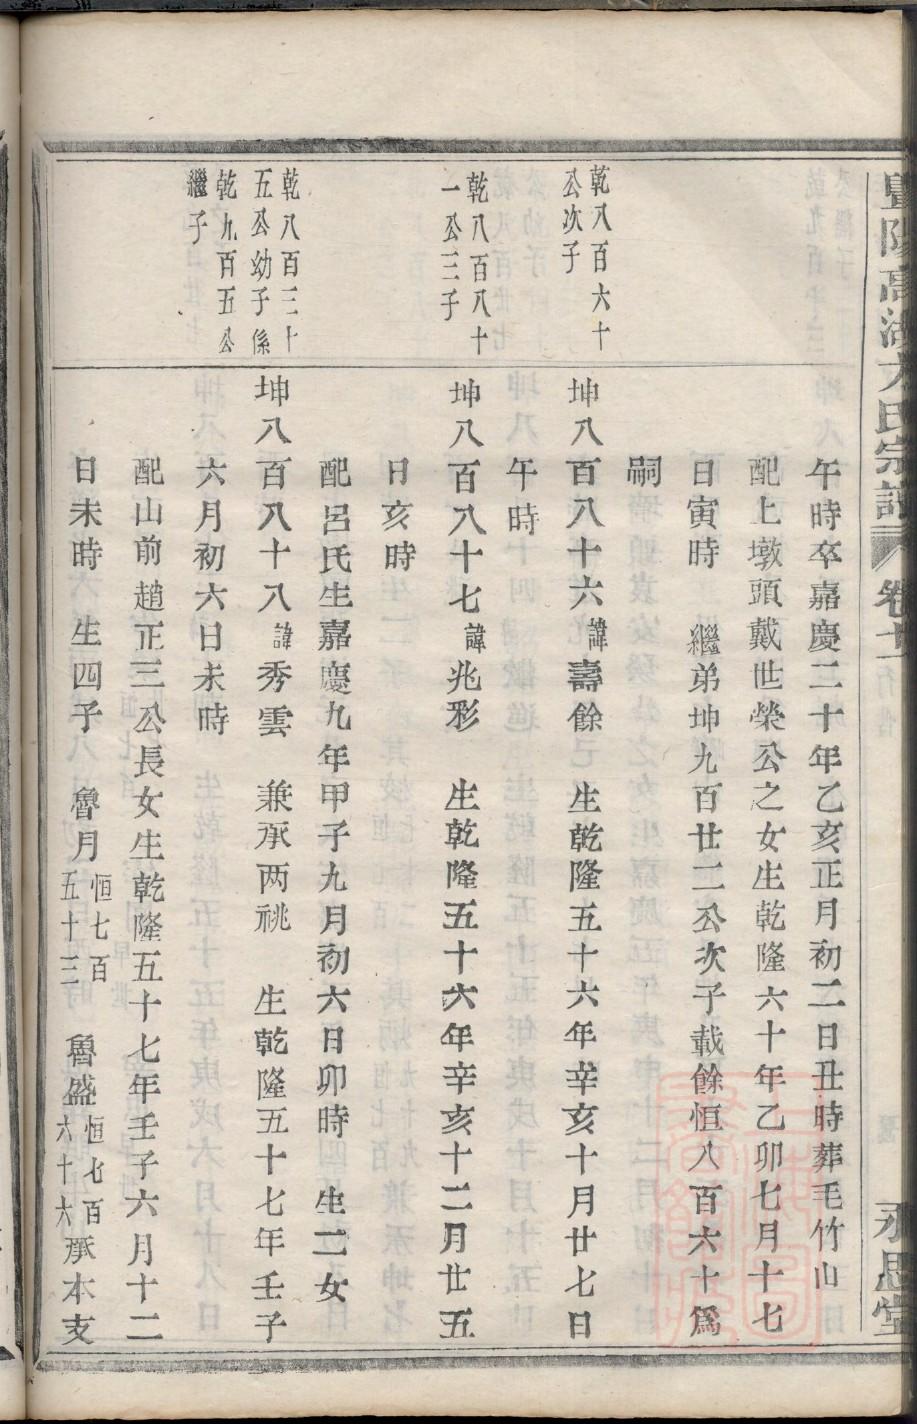 暨陽高湖方氏宗譜 卷十一 永思堂
午時卒嘉慶二十年乙亥正月初二日丑時葬毛竹山
配上墩頭戴世榮公之女生乾隆六十年乙卯七月十七
日寅時 繼弟坤九百廿二公次子載餘恒八百六十爲
嗣
乾八百六十
公次子
坤八百八十六諱壽餘 生乾隆五十六年辛亥十月廿七日
午時
乾八百八十
一公三子
坤八百八十七諱兆彩 生乾隆五十六年辛亥十二月廿五
日亥時
配呂氏生嘉慶九年甲子九月初六日卯時 生二女
乾八百三十
五公幼子係
乾九百五公
繼子
坤八百八十八諱秀雲 兼承两祧 生乾隆五十七年壬子
六月初六日未時
配山前趙正三公長女生乾隆五十七年壬子六月十二
日未時 生四子 魯月恒七百五十三 魯盛恒七百六十六承本支